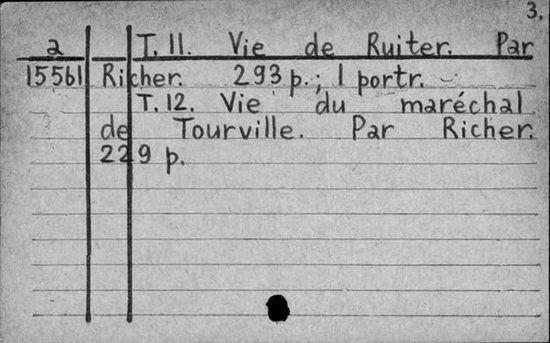 3.
2 T. 11. Vie de Ruiter. Par
15561 Richer. 293 p.; 1 portr.
T. 12. Vie du maréchal
de Tourville. Par Richer.
229 p.